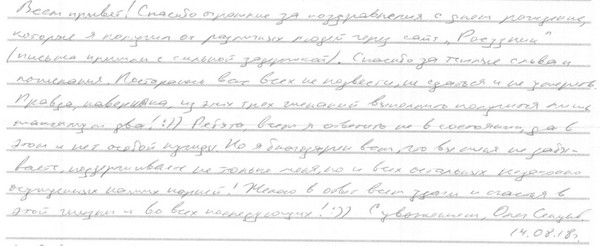 Всем привет! Спасибо огромное за поздравления с днем рождения,
которые я получил от различных людей через сайт „Росузник"
(письма пришли с сильной задержкой). Спасибо за теплые слова и
пожелания. Постараюсь вас всех не подвести, не сдаться и не умереть.
Правда, наверняка, из этих трех желаний выполнить получится лишь
два! :)) Ребята, всем я ответить не в состоянии, да в
этом и нет особой нужды. Но я благодарен вам, что вы меня не забы-
ваете, поддерживаете не только меня, но и всех остальных незаконно
осужденных наших парней! Желаю в ответ всем удачи и счастья в
этой жизни и во всех последующих! :)) С уважением, Олег Сенцов.
14.08.18г.